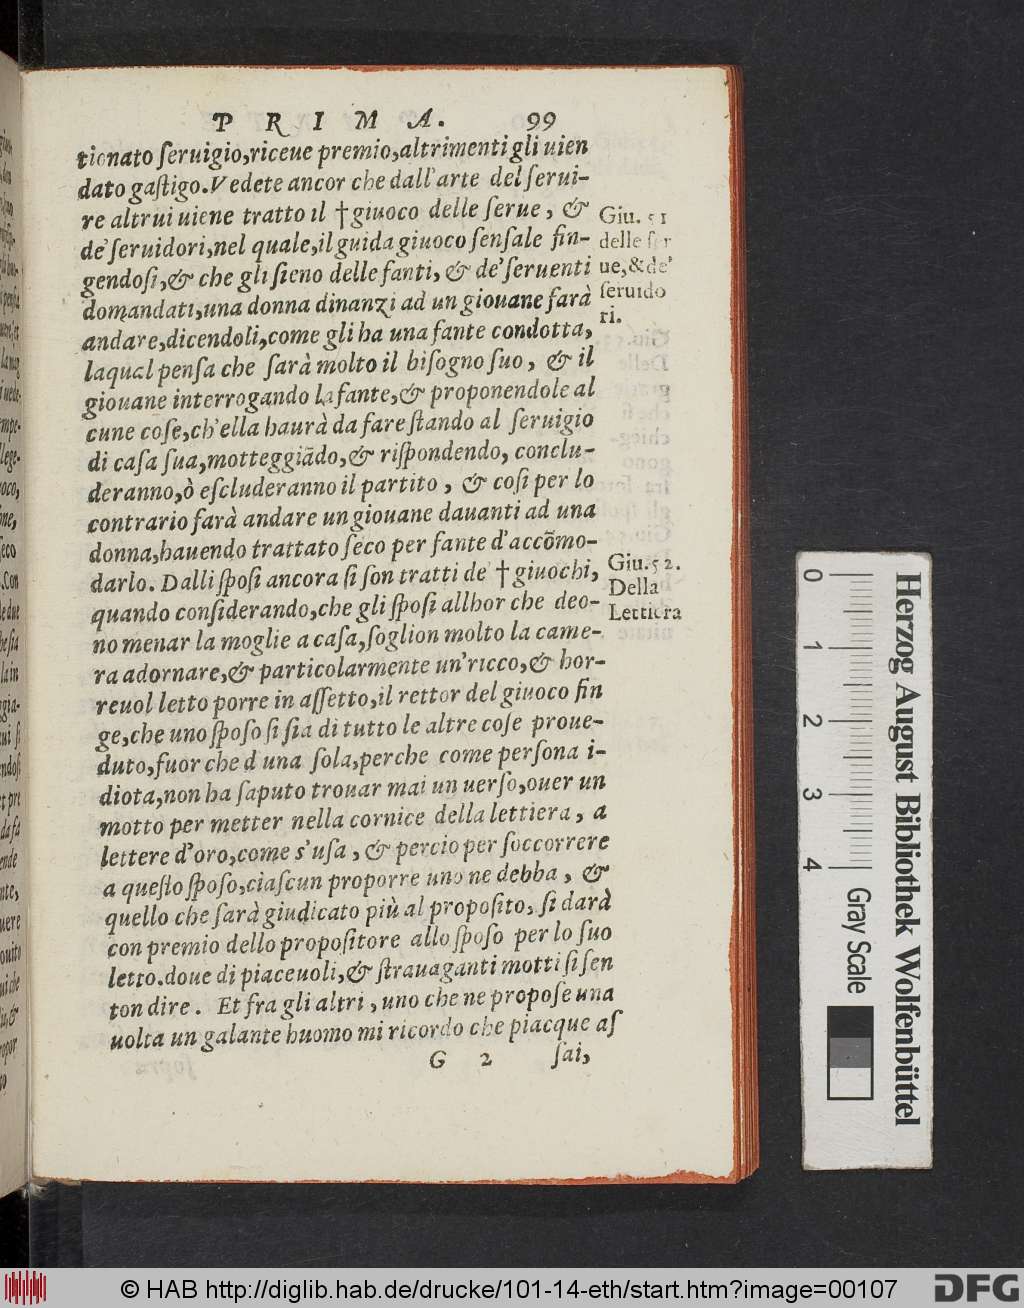 PRIMA. 99
tionato ſeruigio,riceue premio,altrimenti gli uien
dato gaſtigo.Vedete ancor che dall'arte del ſerui-
re altrui uiene tratto il †giuoco delle ſerue, &
de' ſeruidori,nel quale,il guida giuoco ſenſale fin-
gendoſi,& che gli ſieno delle fanti, & de' ſeruenti
domandati,una donna dinanzi ad un giouane farà
andare,dicendoli,come gli ha una fante condotta,
laqual penſa che ſarà molto il biſogno ſuo, & il
giouane interrogando la fante,& proponendole al
cune coſe,ch'ella haurà da fare ſtando al ſeruigio
di caſa ſua,motteggiãdo,& riſpondendo, conclu-
deranno,ò eſcluderanno il partito, & coſi per lo
contrario farà andare un giouane dauanti ad una
donna,hauendo trattato ſeco per fante d'accõmo-
darlo. Dalli ſpoſi ancora ſi ſon tratti de' †giuochi,
quando conſiderando,che gli ſpoſi allhor che deo-
no menar la moglie a caſa,ſoglion molto la came-
ra adornare,& particolarmente un'ricco,& hor-
reuol letto porre in aſſetto,il rettor del giuoco fin
ge,che uno ſpoſo ſi ſia di tutto le altre coſe proue-
duto,fuor che d'una ſola,perche come perſona i-
diota,non ha ſaputo trouar mai un uerſo,ouer un
motto per metter nella cornice della lettiera, a
lettere d'oro,come s'uſa, & percio per ſoccorrere
a queſto ſpoſo,ciaſcun proporre uno ne debba, &
quello che ſarà giudicato più al propoſito, ſi darà
con premio dello propoſitore allo ſpoſo per lo ſuo
letto.doue di piaceuoli,& ſtrauaganti motti ſi ſen
ton dire. Et fra gli altri, uno che ne propoſe una
uolta un galante huomo mi ricordo che piacque aſ
G 2 ſai,
Giu. 51
delle ſer
ue,& de'
ſeruido
ri.
Giu.52.
Della
Lettiera
0 1 2 3 4
Gray Scale
Herzog August Bibliothek Wolfenbüttel
© HAB http://diglib.hab.de/drucke/101-14-eth/start.htm?image=00107
DFG